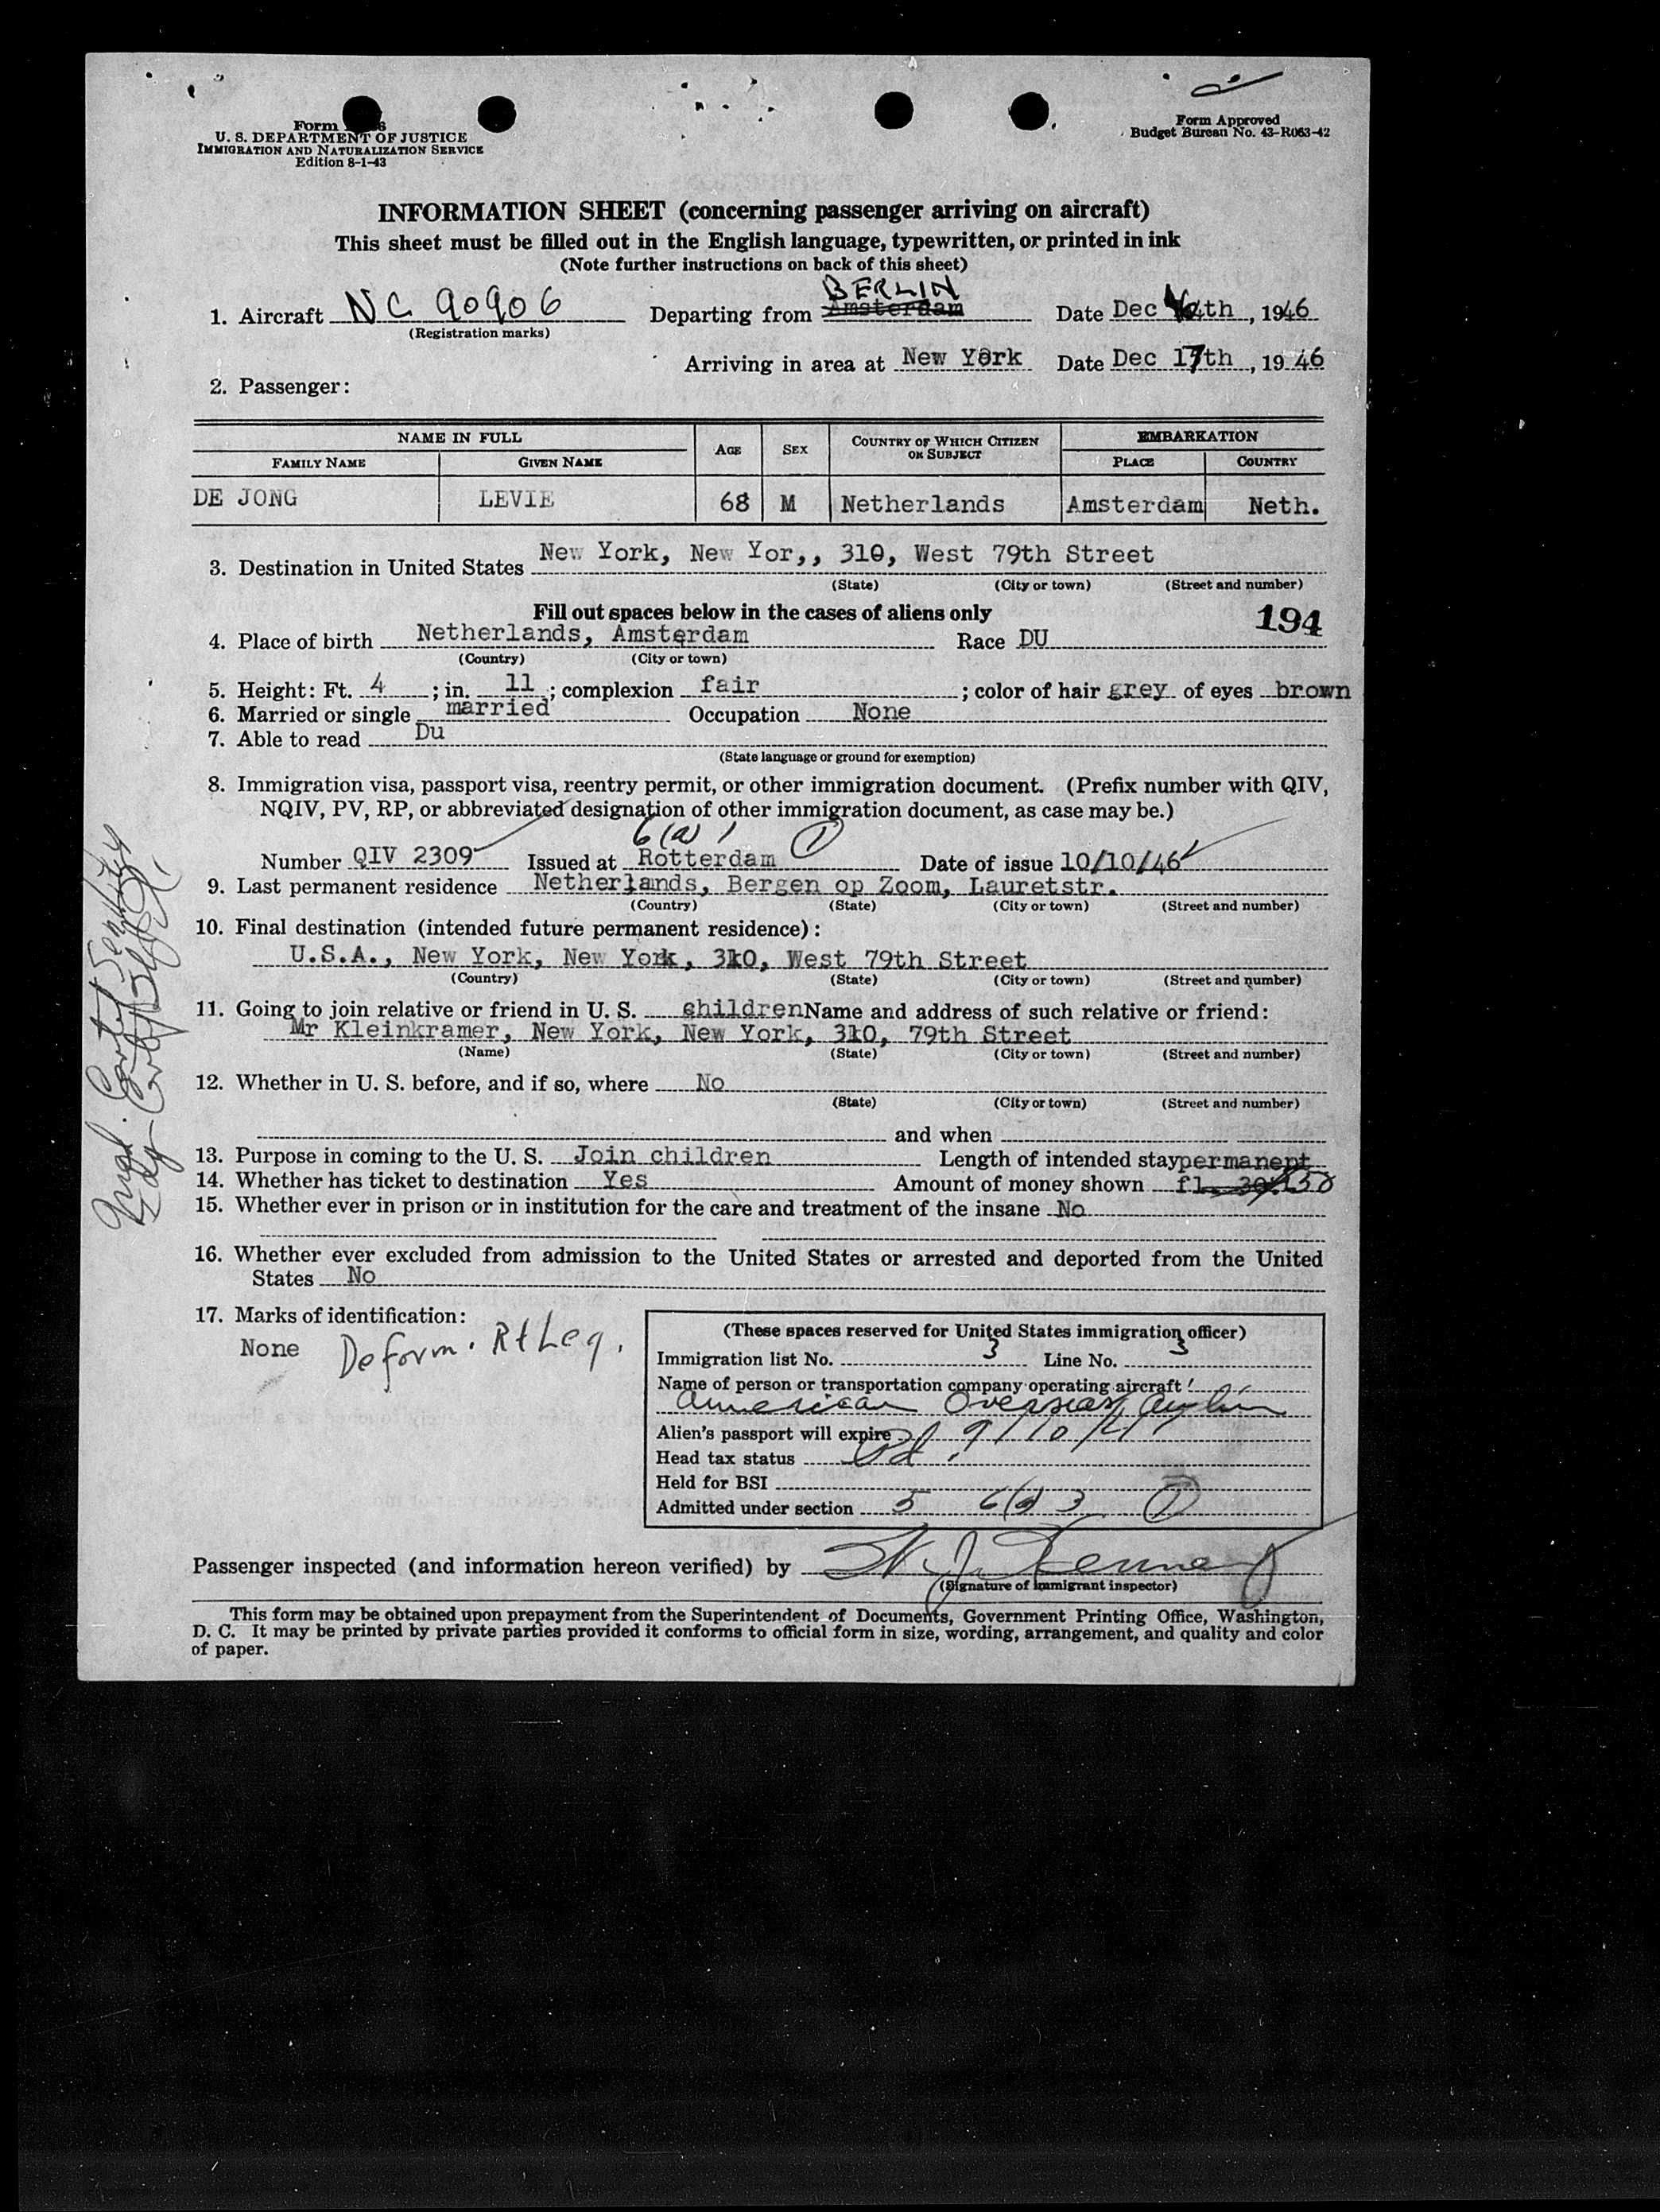 Form
U. S. DEPARTMENT OF JUSTICE
IMMIGRATION AND NATURALIZATION SERVICE
Edition 8-1-43
Form Approved
Budget Bureau No. 43-R063-42
INFORMATION SHEET (concerning passenger arriving on aircraft)
This sheet must be filled out in the English language, typewritten, or printed in ink
(Note further instructions on back of this sheet)
BERLIN
1. Aircraft NC 90906 Departing from Amsterdam Date Dec th, 1946
(Registration marks)
Arriving in area at New York Date Dec 17th, 1946
2. Passenger:
NAME IN FULL AGE SEX COUNTRY OF WHICH CITIZEN OR SUBJECT EMBARKATION
FAMILY NAME GIVEN NAME PLACE COUNTRY
DE JONG LEVIE 68 M Netherlands Amsterdam Neth.
3. Destination in United States New York, New Yor,, 310, West 79th Street
(State) (City or town) (Street and number)
Fill out spaces below in the cases of aliens only 194
4. Place of birth Netherlands, Amsterdam Race DU
(Country) (City or town)
5. Height: Ft. 4 ; in. 11 ; complexion fair ; color of hair grey of eyes brown
6. Married or single married Occupation None
7. Able to read Du
(State language or ground for exemption)
8. Immigration visa, passport visa, reentry permit, or other immigration document. (Prefix number with QIV,
NQIV, PV, RP, or abbreviated designation of other immigration document, as case may be.)
6(a) 1 (1)
Number QIV 2309 Issued at Rotterdam Date of issue 10/10/46
9. Last permanent residence Netherlands, Bergen op Zoom, Lauretstr.
(Country) (State) (City or town) (Street and number)
10. Final destination (intended future permanent residence):
U.S.A., New York, New York, 310, West 79th Street
(Country) (State) (City or town) (Street and number)
11. Going to join relative or friend in U. S. children Name and address of such relative or friend:
Mr Kleinkramer, New York, New York, 310, 79th Street
(Name) (State) (City or town) (Street and number)
12. Whether in U. S. before, and if so, where No
(State) (City or town) (Street and number)
and when
13. Purpose in coming to the U. S. Join children Length of intended stay permanent
14. Whether has ticket to destination Yes Amount of money shown fl.
15. Whether ever in prison or in institution for the care and treatment of the insane No
16. Whether ever excluded from admission to the United States or arrested and deported from the United
States No
17. Marks of identification:
None Deform. Rt Leg.
(These spaces reserved for United States immigration officer)
Immigration list No. 3 Line No. 3
Name of person or transportation company operating aircraft
American Overseas Airlin
Alien's passport will expire
Head tax status Pd.
Held for BSI
Admitted under section 5 6(a) 3 (1)
Passenger inspected (and information hereon verified) by
(Signature of immigrant inspector)
This form may be obtained upon prepayment from the Superintendent of Documents, Government Printing Office, Washington,
D. C. It may be printed by private parties provided it conforms to official form in size, wording, arrangement, and quality and color
of paper.